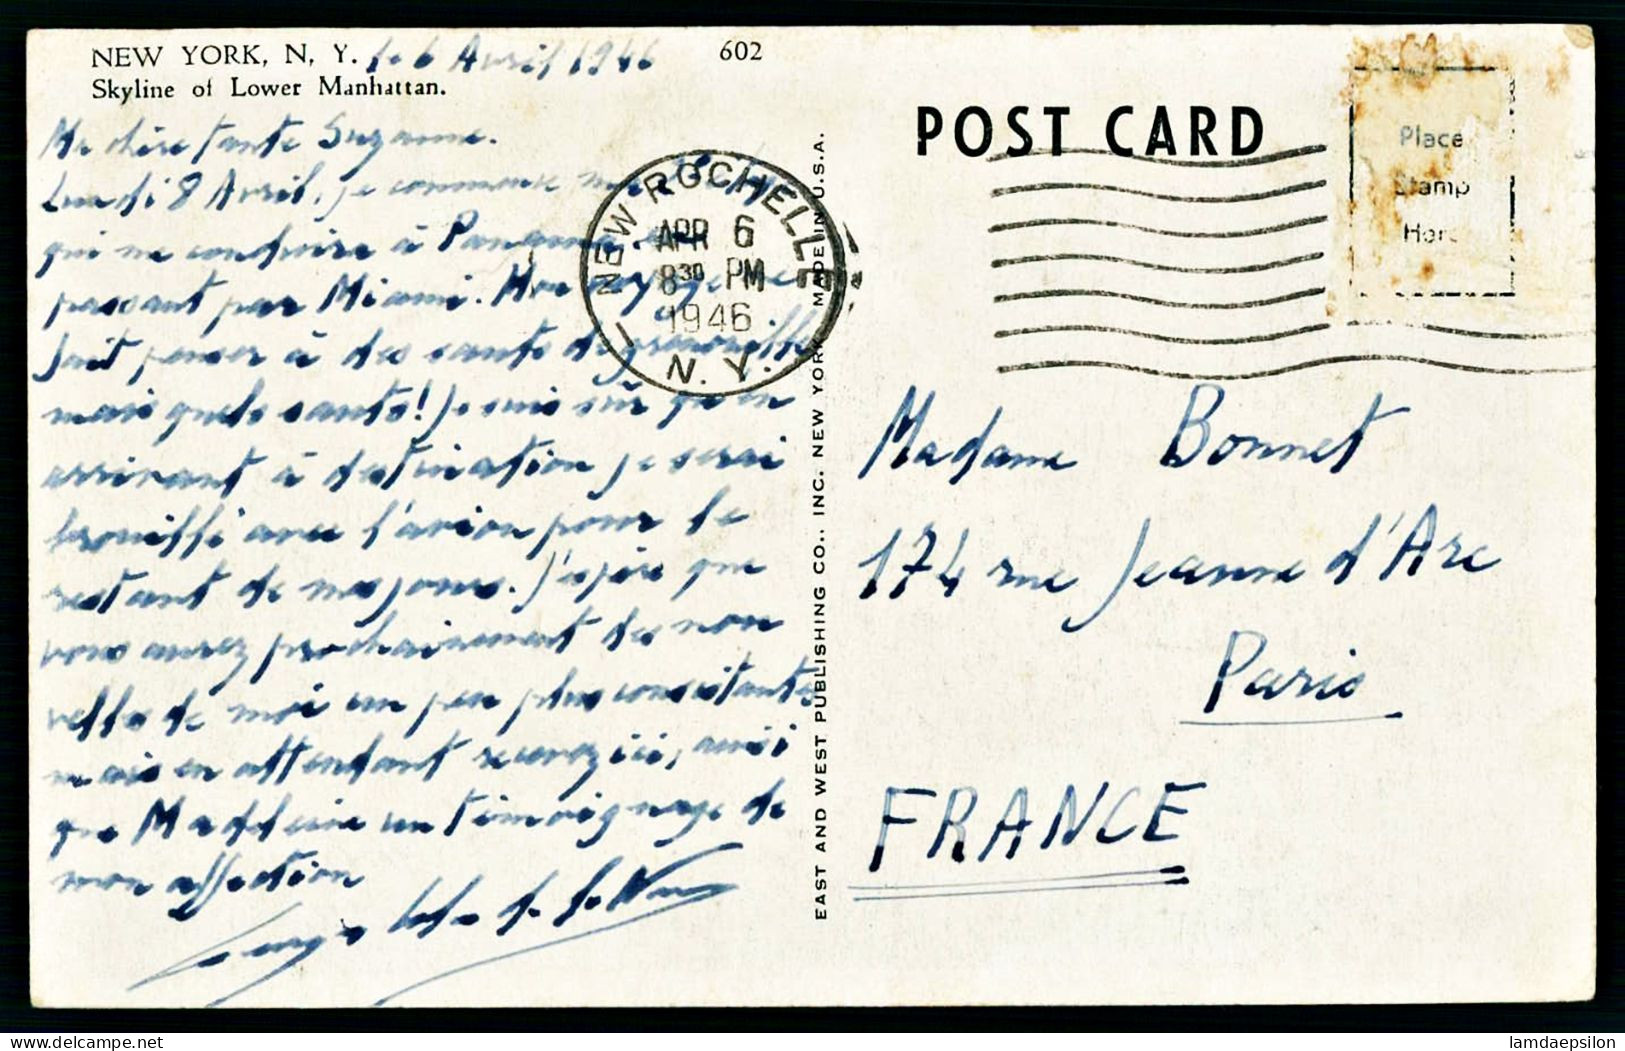 NEW YORK, N. Y. le 6 Avril 1946
602
Skyline of Lower Manhattan.
Ma chère tante Suzanne.
Lundi 8 Avril, je commence
qui me conduira à Panama. en
passant par Miami. Mon voyage me
fait penser à des sauts de grenouille
mais quels sauts! Je suis sûr qu'en
arrivant à destination je serai
brouillé avec l'avion pour le
restant de mes jours. J'espère que
vous aurez prochainement des nou
velles de moi un peu plus consistantes
mais en attendant recevez ici, ainsi
que Madeleine un témoignage de
mon affection
POST CARD
Place
Stamp
Here
NEW ROCHELLE
APR 6
8 30 PM
1946
N. Y.
EAST AND WEST PUBLISHING CO., INC. NEW YORK MADE IN U.S.A.
Madame Bonnet
174 rue Jeanne d'Arc
Paris
FRANCE
lamdaepsilon